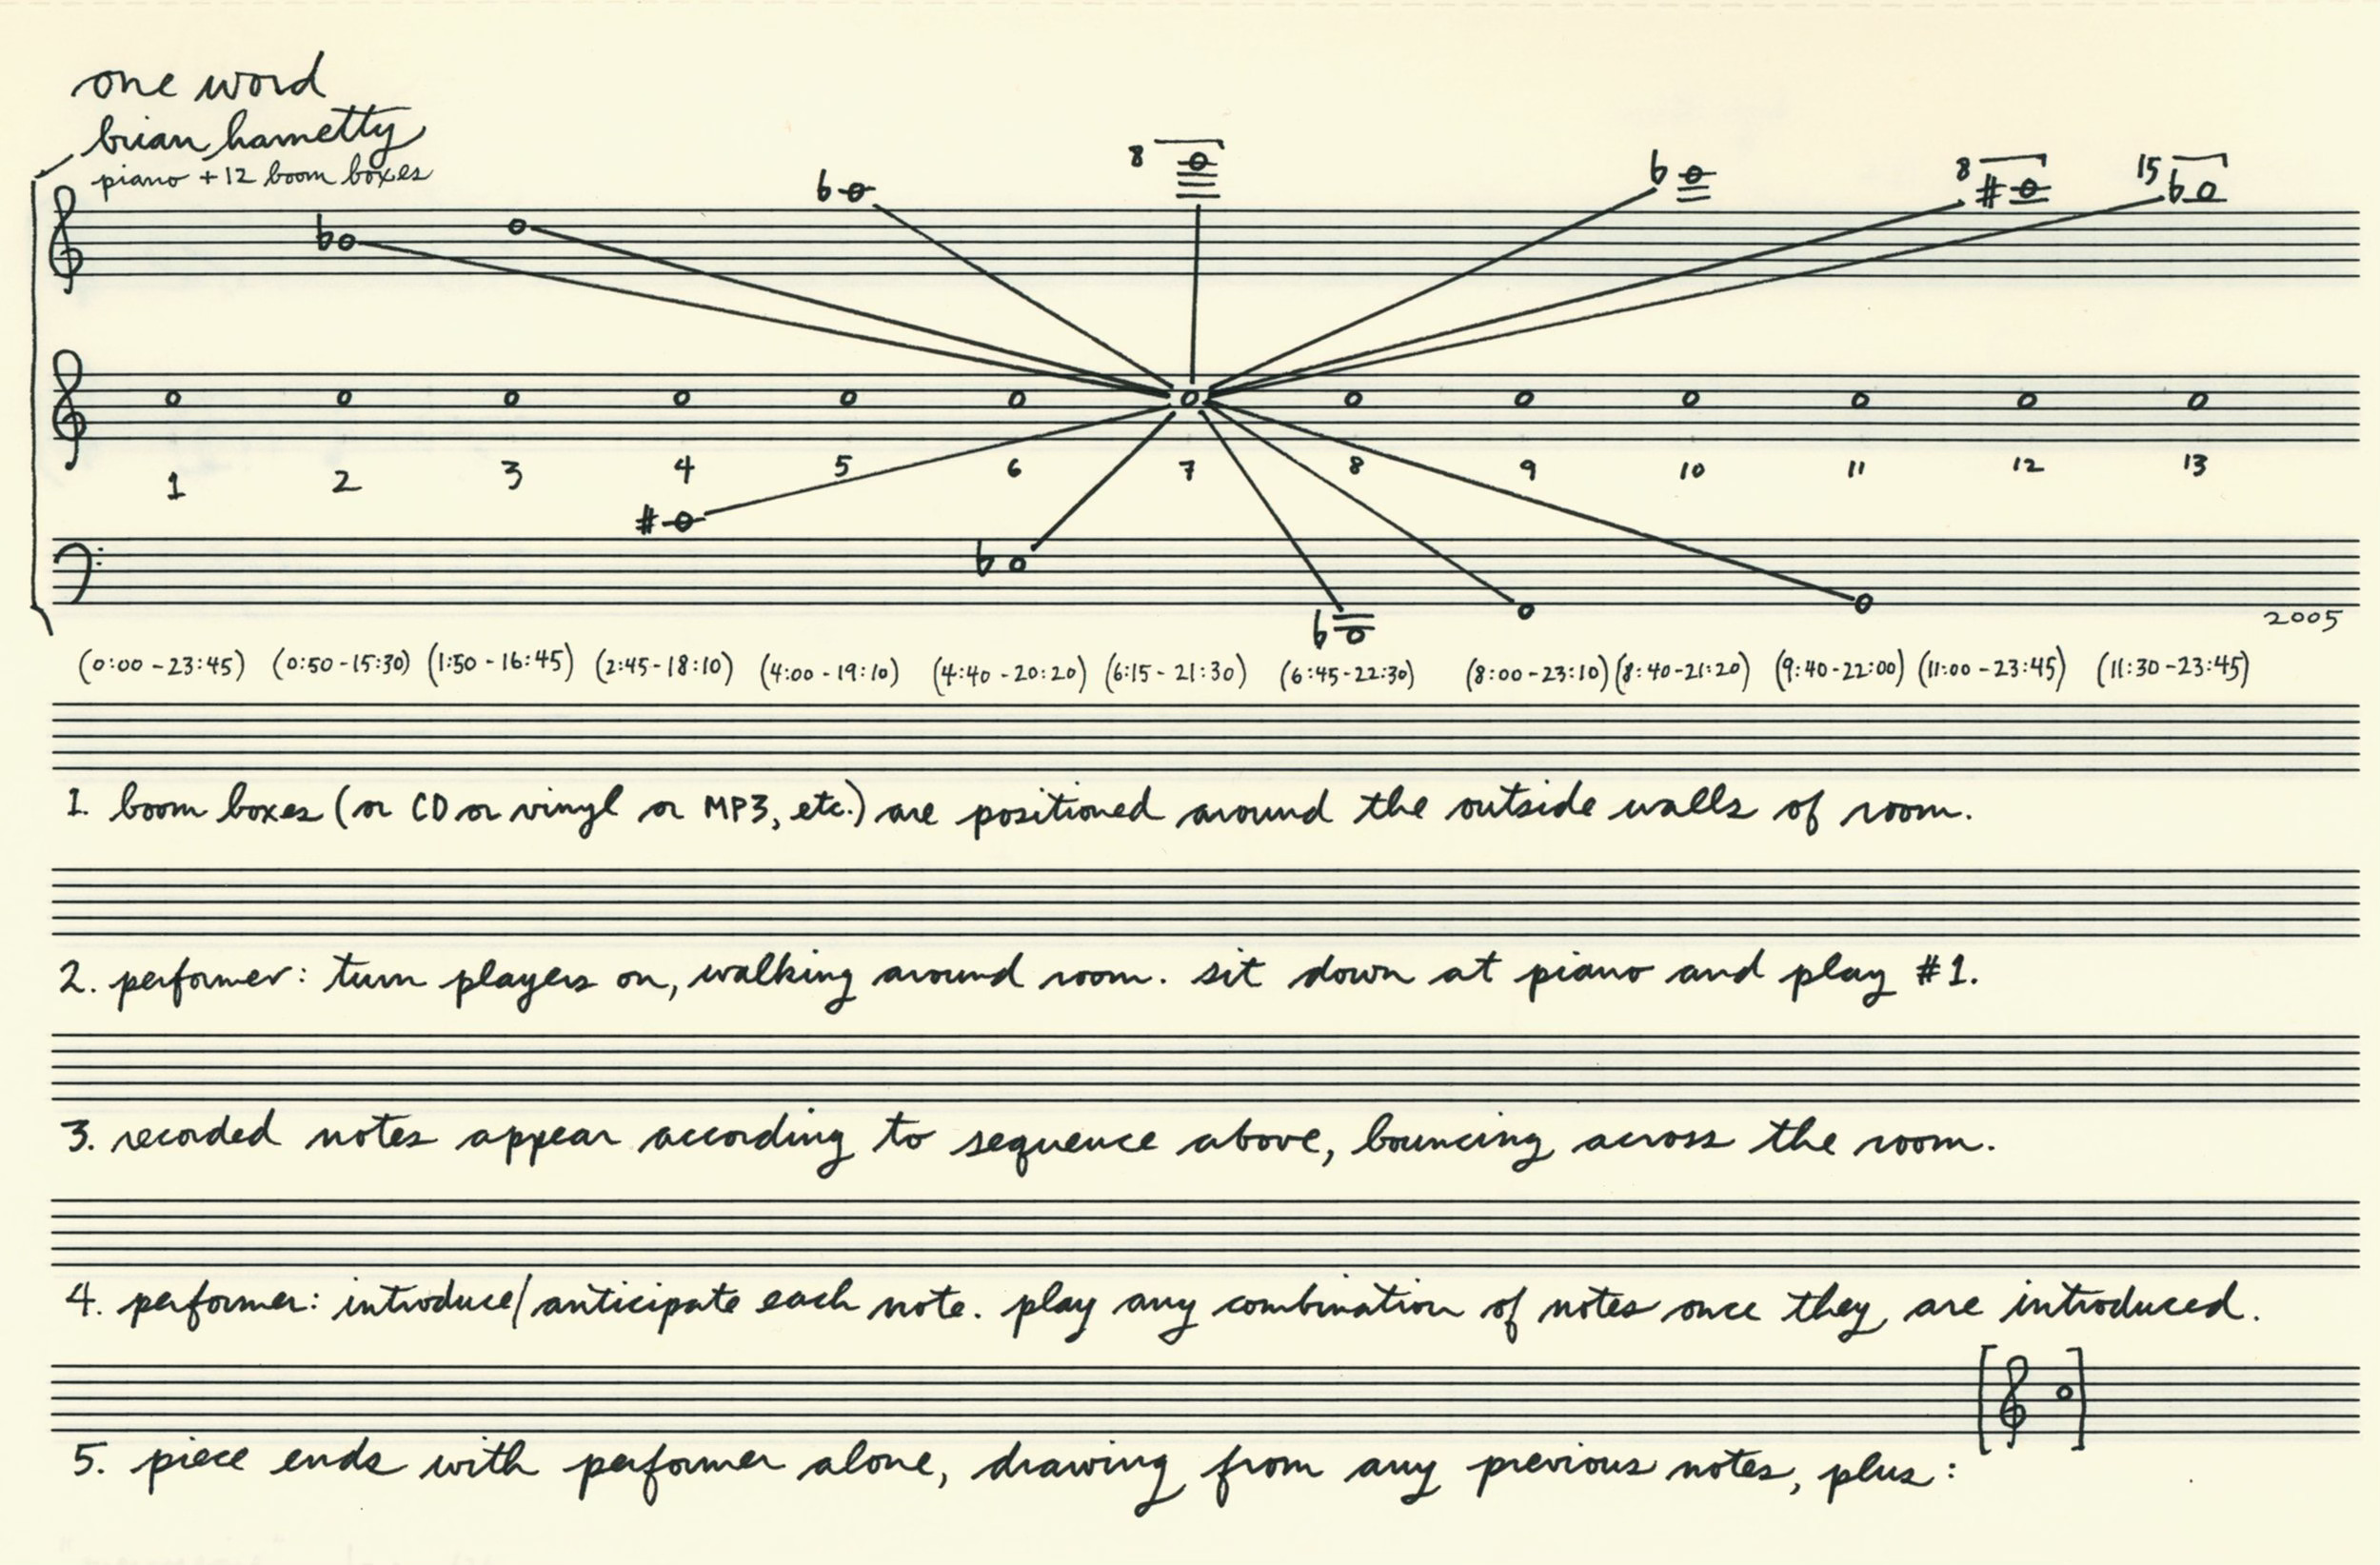 one word
brian harnetty
piano + 12 boom boxes
8
8
15
1 2 3 4 5 6 7 8 9 10 11 12 13
2005
(0:00 - 23:45) (0:50 - 15:30) (1:50 - 16:45) (2:45 - 18:10) (4:00 - 19:10) (4:40 - 20:20) (6:15 - 21:30) (6:45 - 22:30) (8:00 - 23:10) (8:40 - 21:20) (9:40 - 22:00) (11:00 - 23:45) (11:30 - 23:45)
1. boom boxes (or CD or vinyl or MP3, etc.) are positioned around the outside walls of room.
2. performer: turn players on, walking around room. sit down at piano and play #1.
3. recorded notes appear according to sequence above, bouncing across the room.
4. performer: introduce/anticipate each note. play any combination of notes once they are introduced.
5. piece ends with performer alone, drawing from any previous notes, plus: